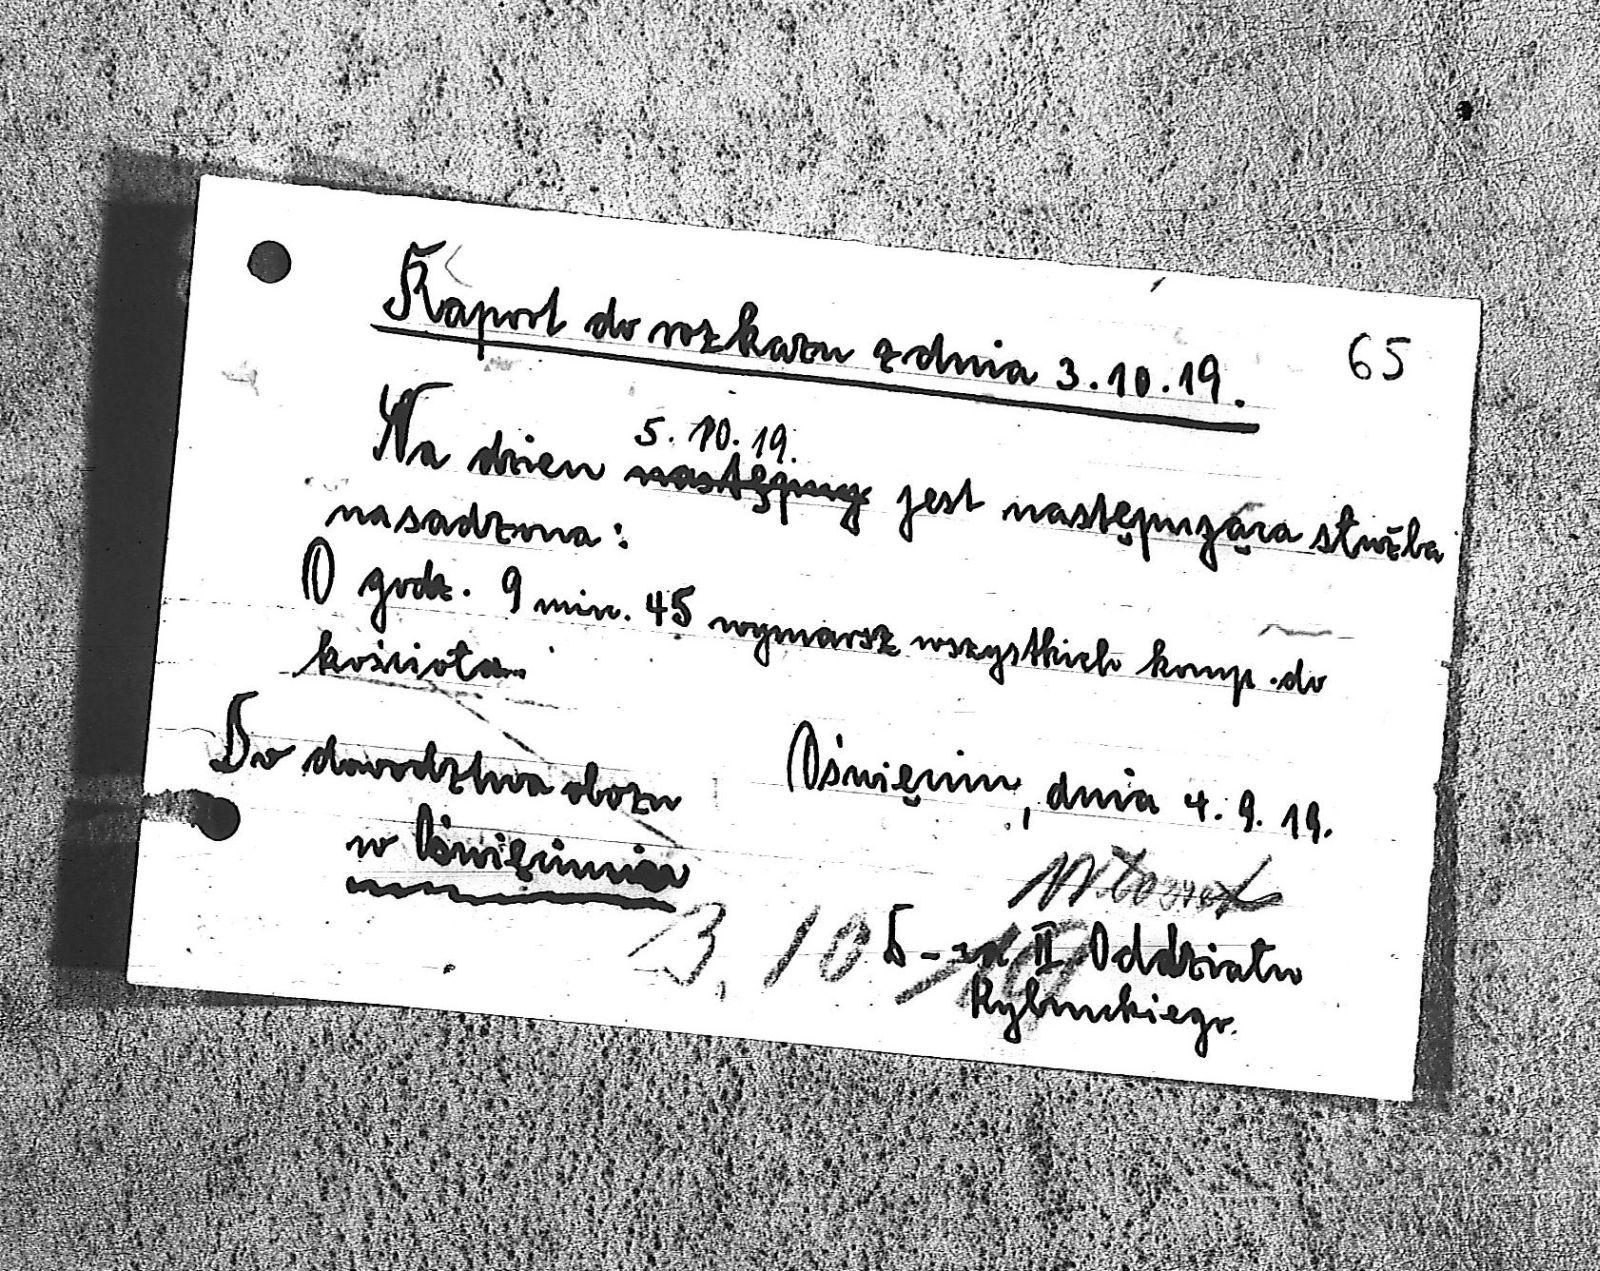 Raport do rozkazu z dnia 3.10.19.
65
5.10.19.
Na dzien następny jest następująca służba
nasadzona:
O godz. 9 min. 45 wymarsz wszystkich komp. do
kościoła.
Do dowodztwa obozu
w Oświęcimiu
Oświęcim, dnia 4.9.19.
3.10.19
D-za II Oddziału
Rybnickiego.